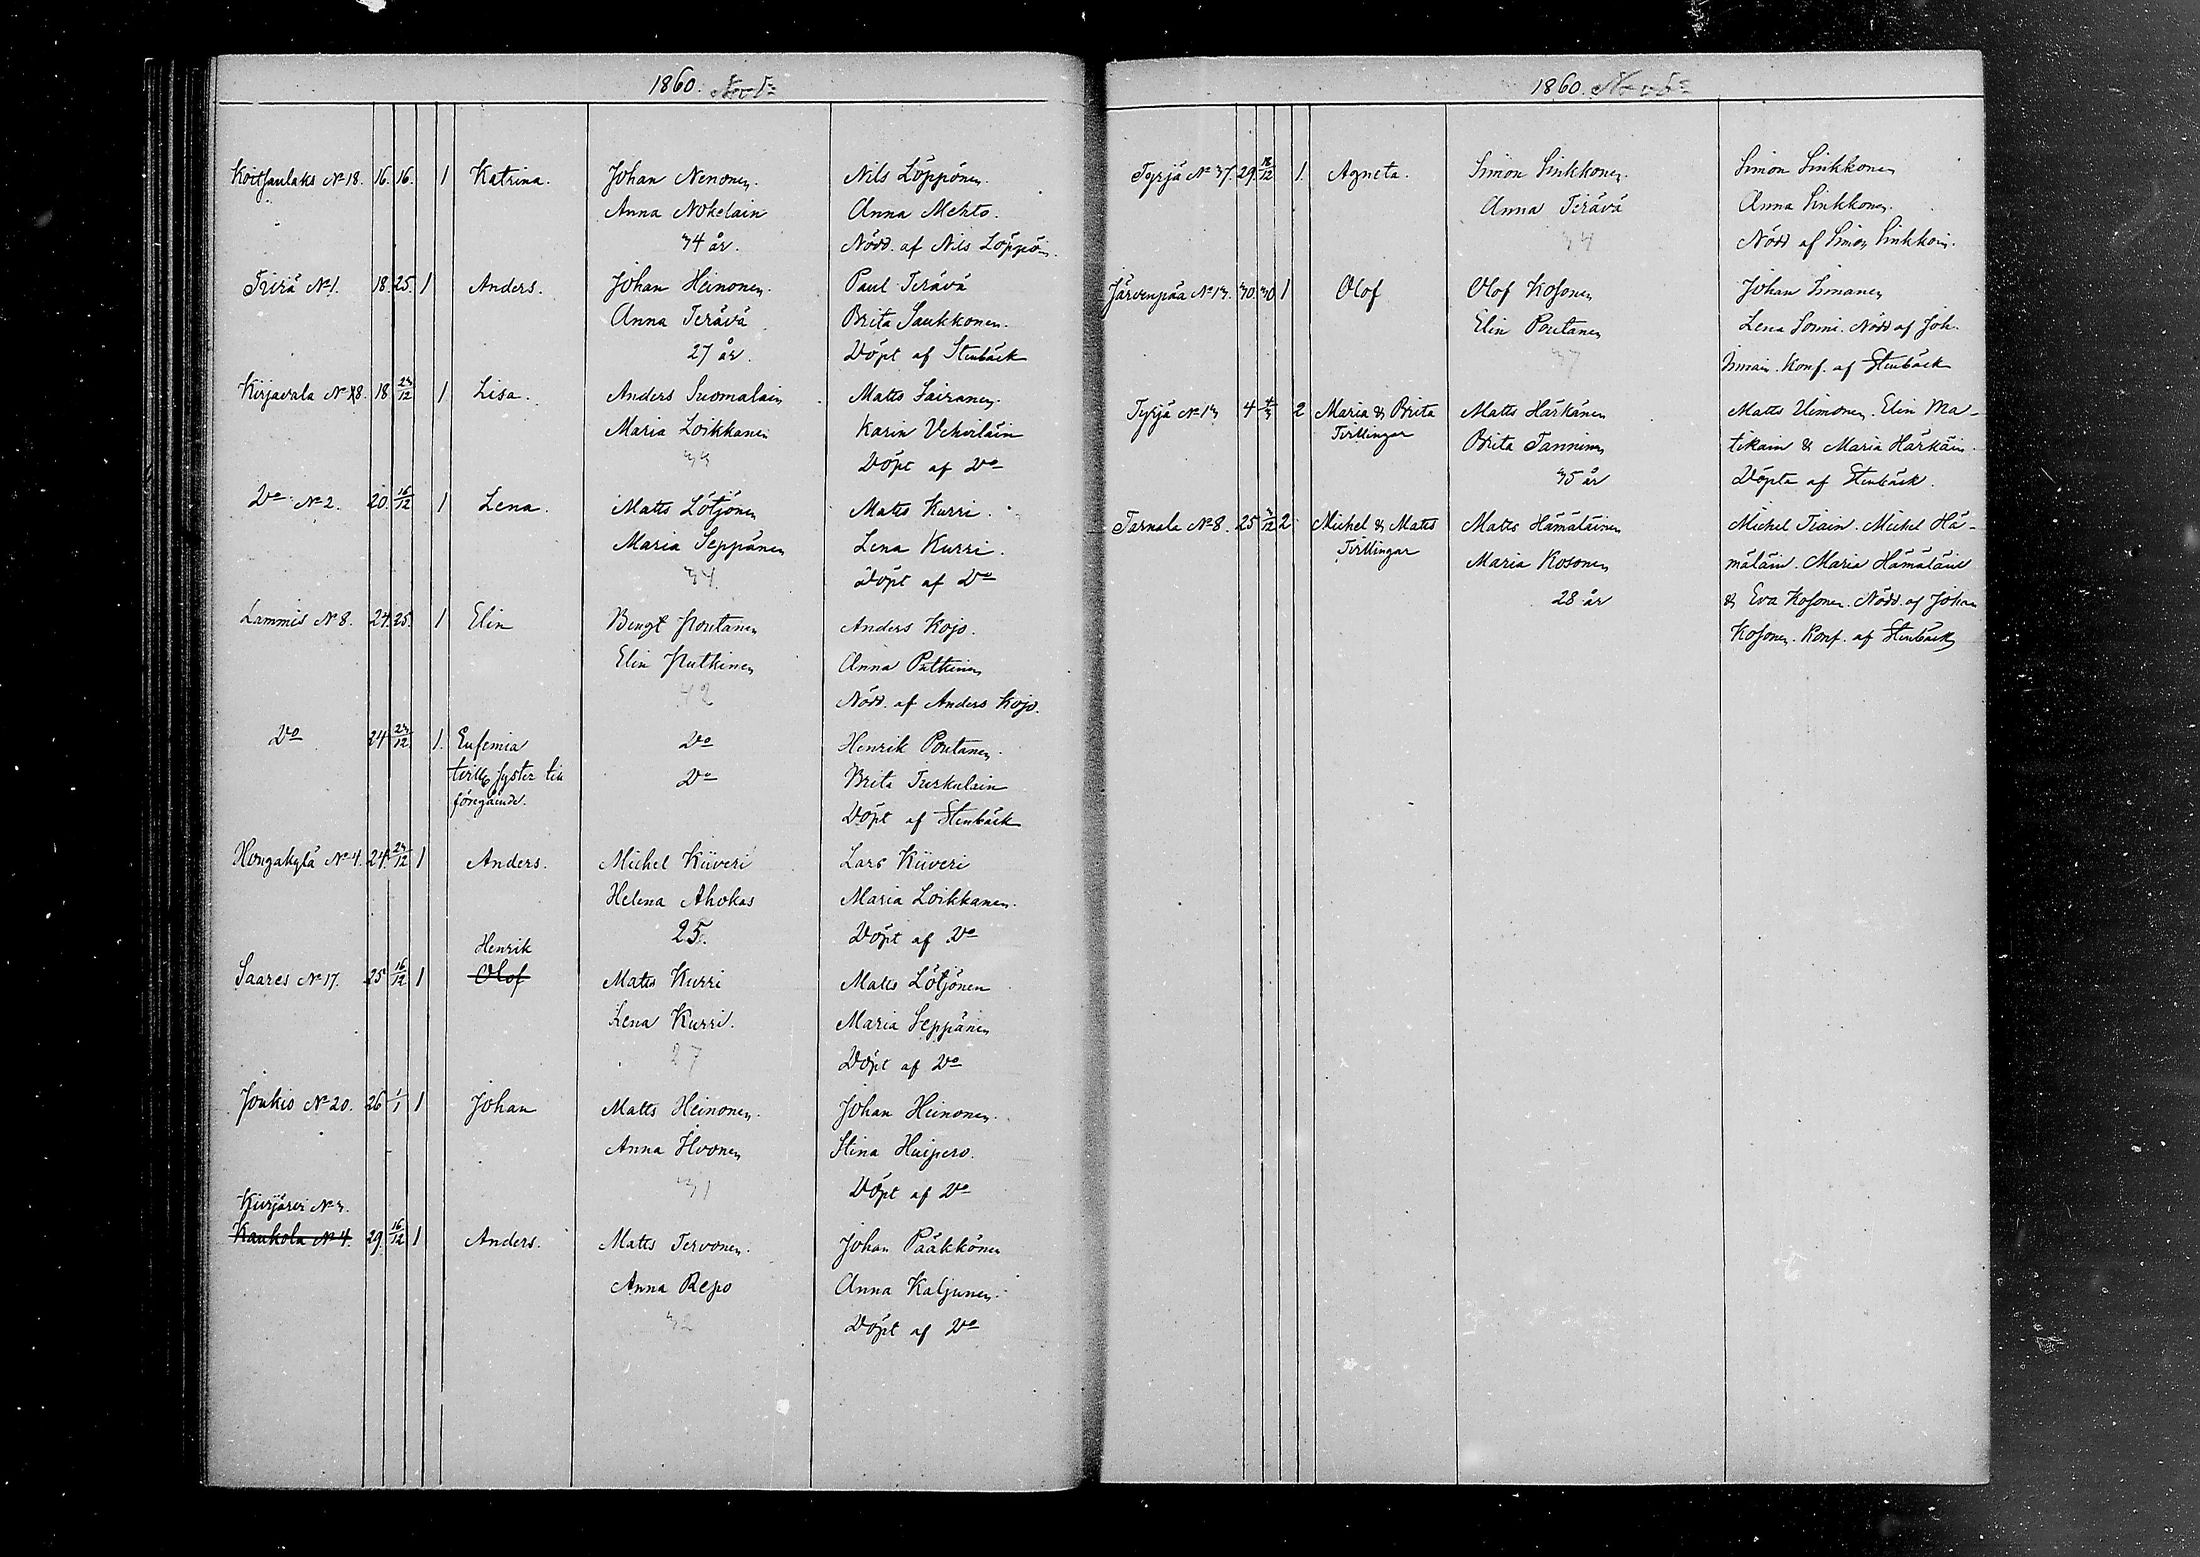 1860. Novb:
Koitsanlaks No 18. 16. 16. 1 Katrina. Johan Nenonen. Nils Löppönen.
Anna Nokelain Anna Mehto.
34 år. Nödd. af Nils Löppön.
Tiriä No 1. 18. 25. 1 Anders. Johan Heinonen. Paul Terävä
Anna Terävä Brita Saukkonen.
27 år. Döpt af Stenbäck
Kirjavala No 8. 18 23/12 1 Lisa. Anders Suomalain Matts Sairanen.
Maria Loikkanen Karin Vehviläin
33 Döpt af Do
Do No 2. 20. 16/12 1 Lena. Matts Lötjönen Matts Kurri.
Maria Seppänen Lena Kurri.
34 Döpt af Do
Lammis No 8. 24. 25. 1 Elin Bengt Poutanen Anders Kojo.
Elin Putkinen Anna Putkinen
42 Nödd. af Anders Kojo.
Do 24 23/12 1. Eufemia Do Henrik Poutanen.
tvill. syster till Do Brita Turkulain
föregående. Döpt af Stenbäck
Hongakylä No 4. 24. 23/12 1 Anders. Michel Kiiveri Lars Kiiveri
Helena Ahokas Maria Loikkanen.
25. Döpt af Do
Henrik
Saares No 17. 25 16/12 1 Olof Matts Kurri Matts Lötjönen
Lena Kurri. Maria Seppänen
27 Döpt af Do
Joukio No 20. 26 1/1 1 Johan Matts Heinonen. Johan Heinonen.
Anna Ilvonen Stina Huipero.
31 Döpt af Do
Kivijärvi No 3.
Kaukola No 4. 29. 16/12 1 Anders. Matts Tervonen. Johan Pääkkönen
Anna Repo Anna Kaljunen.
32 Döpt af Do
1860. Novb:
Tyrjä No 37. 29. 18/12 1. Agneta. Simon Sinkkonen. Simon Sinkkonen
Anna Terävä Anna Sinkkonen.
34 Nödd af Simon Sinkkoin.
Järvenpää No 13. 30. 30. 1 Olof Olof Kosonen Johan Imanen
Elin Poutanen Lena Sorni. Nödd af Joh.
37 Imain. Konf. af Stenbäck
Tyrjä No 13 4 4/3 2 Maria & Brita Matts Härkänen Matts Uimonen. Elin Ma-
Tvillingar Brita Tanninen tikain & Maria Härkäin.
35 år Döpta af Stenbäck.
Tarnala No 8. 25 3/12 2 Michel & Matts Matts Hämäläinen Michel Tiain. Michel Hä-
Tvillingar Maria Kosonen mäläin. Maria Hämäläine
28 år & Eva Kosonen. Nödd. af Johan
Kosonen. Konf. af Stenbäck